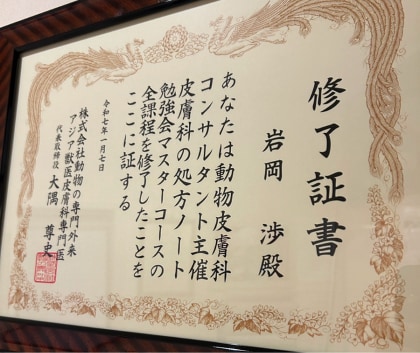 修了証書
岩岡 渉殿
あなたは動物皮膚科
コンサルタント主催
皮膚科の処方ノート
勉強会マスターコースの
全課程を修了したことを
ここに証する
令和七年一月七日
株式会社動物の専門外来
アジア獣医皮膚科専門医
代表取締役 大隅 尊史